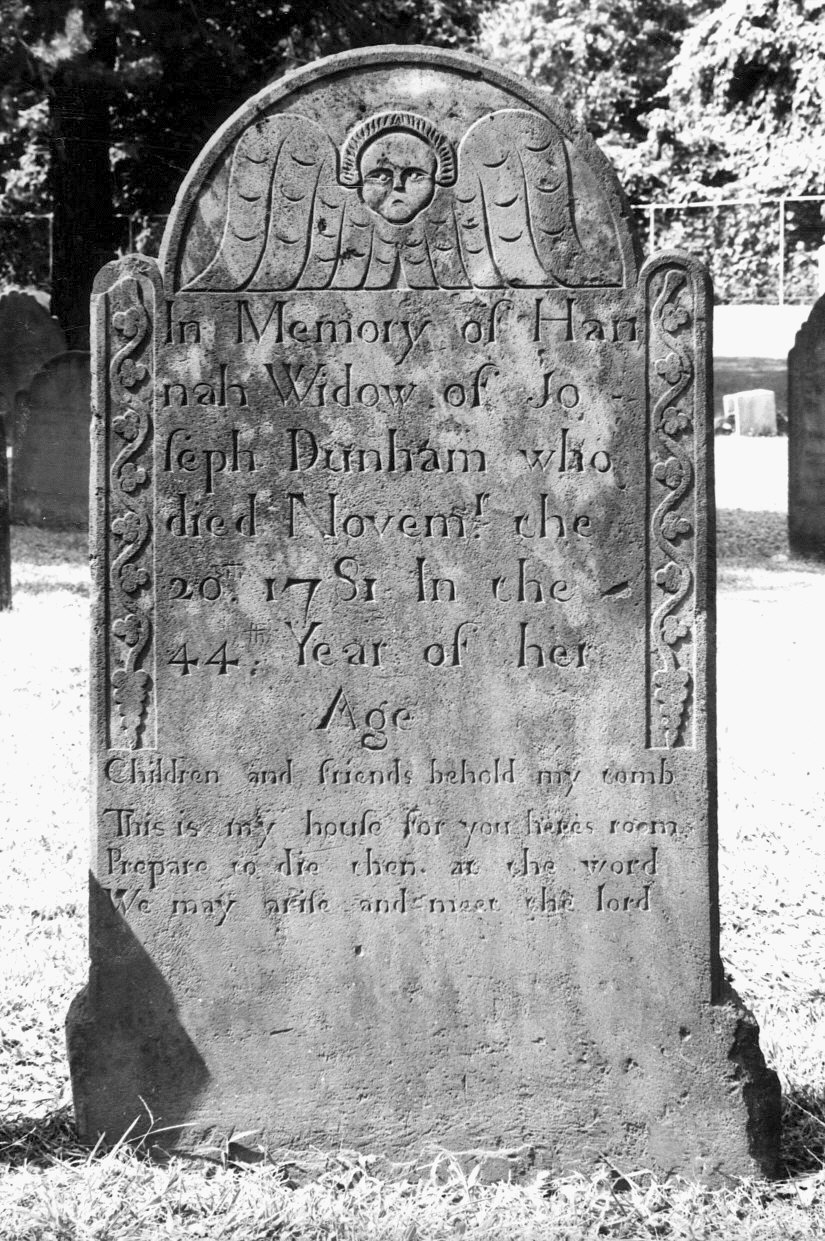 In Memory of Han
nah Widow of Jo-
ſeph Dunham who
died Novemʳ. the
20ᵗʰ. 1781 In the
44ᵗʰ. Year of her
Age
Children and friends behold my tomb
This is my houſe for you heres room
Prepare to die then at the word
We may ariſe and meet the lord